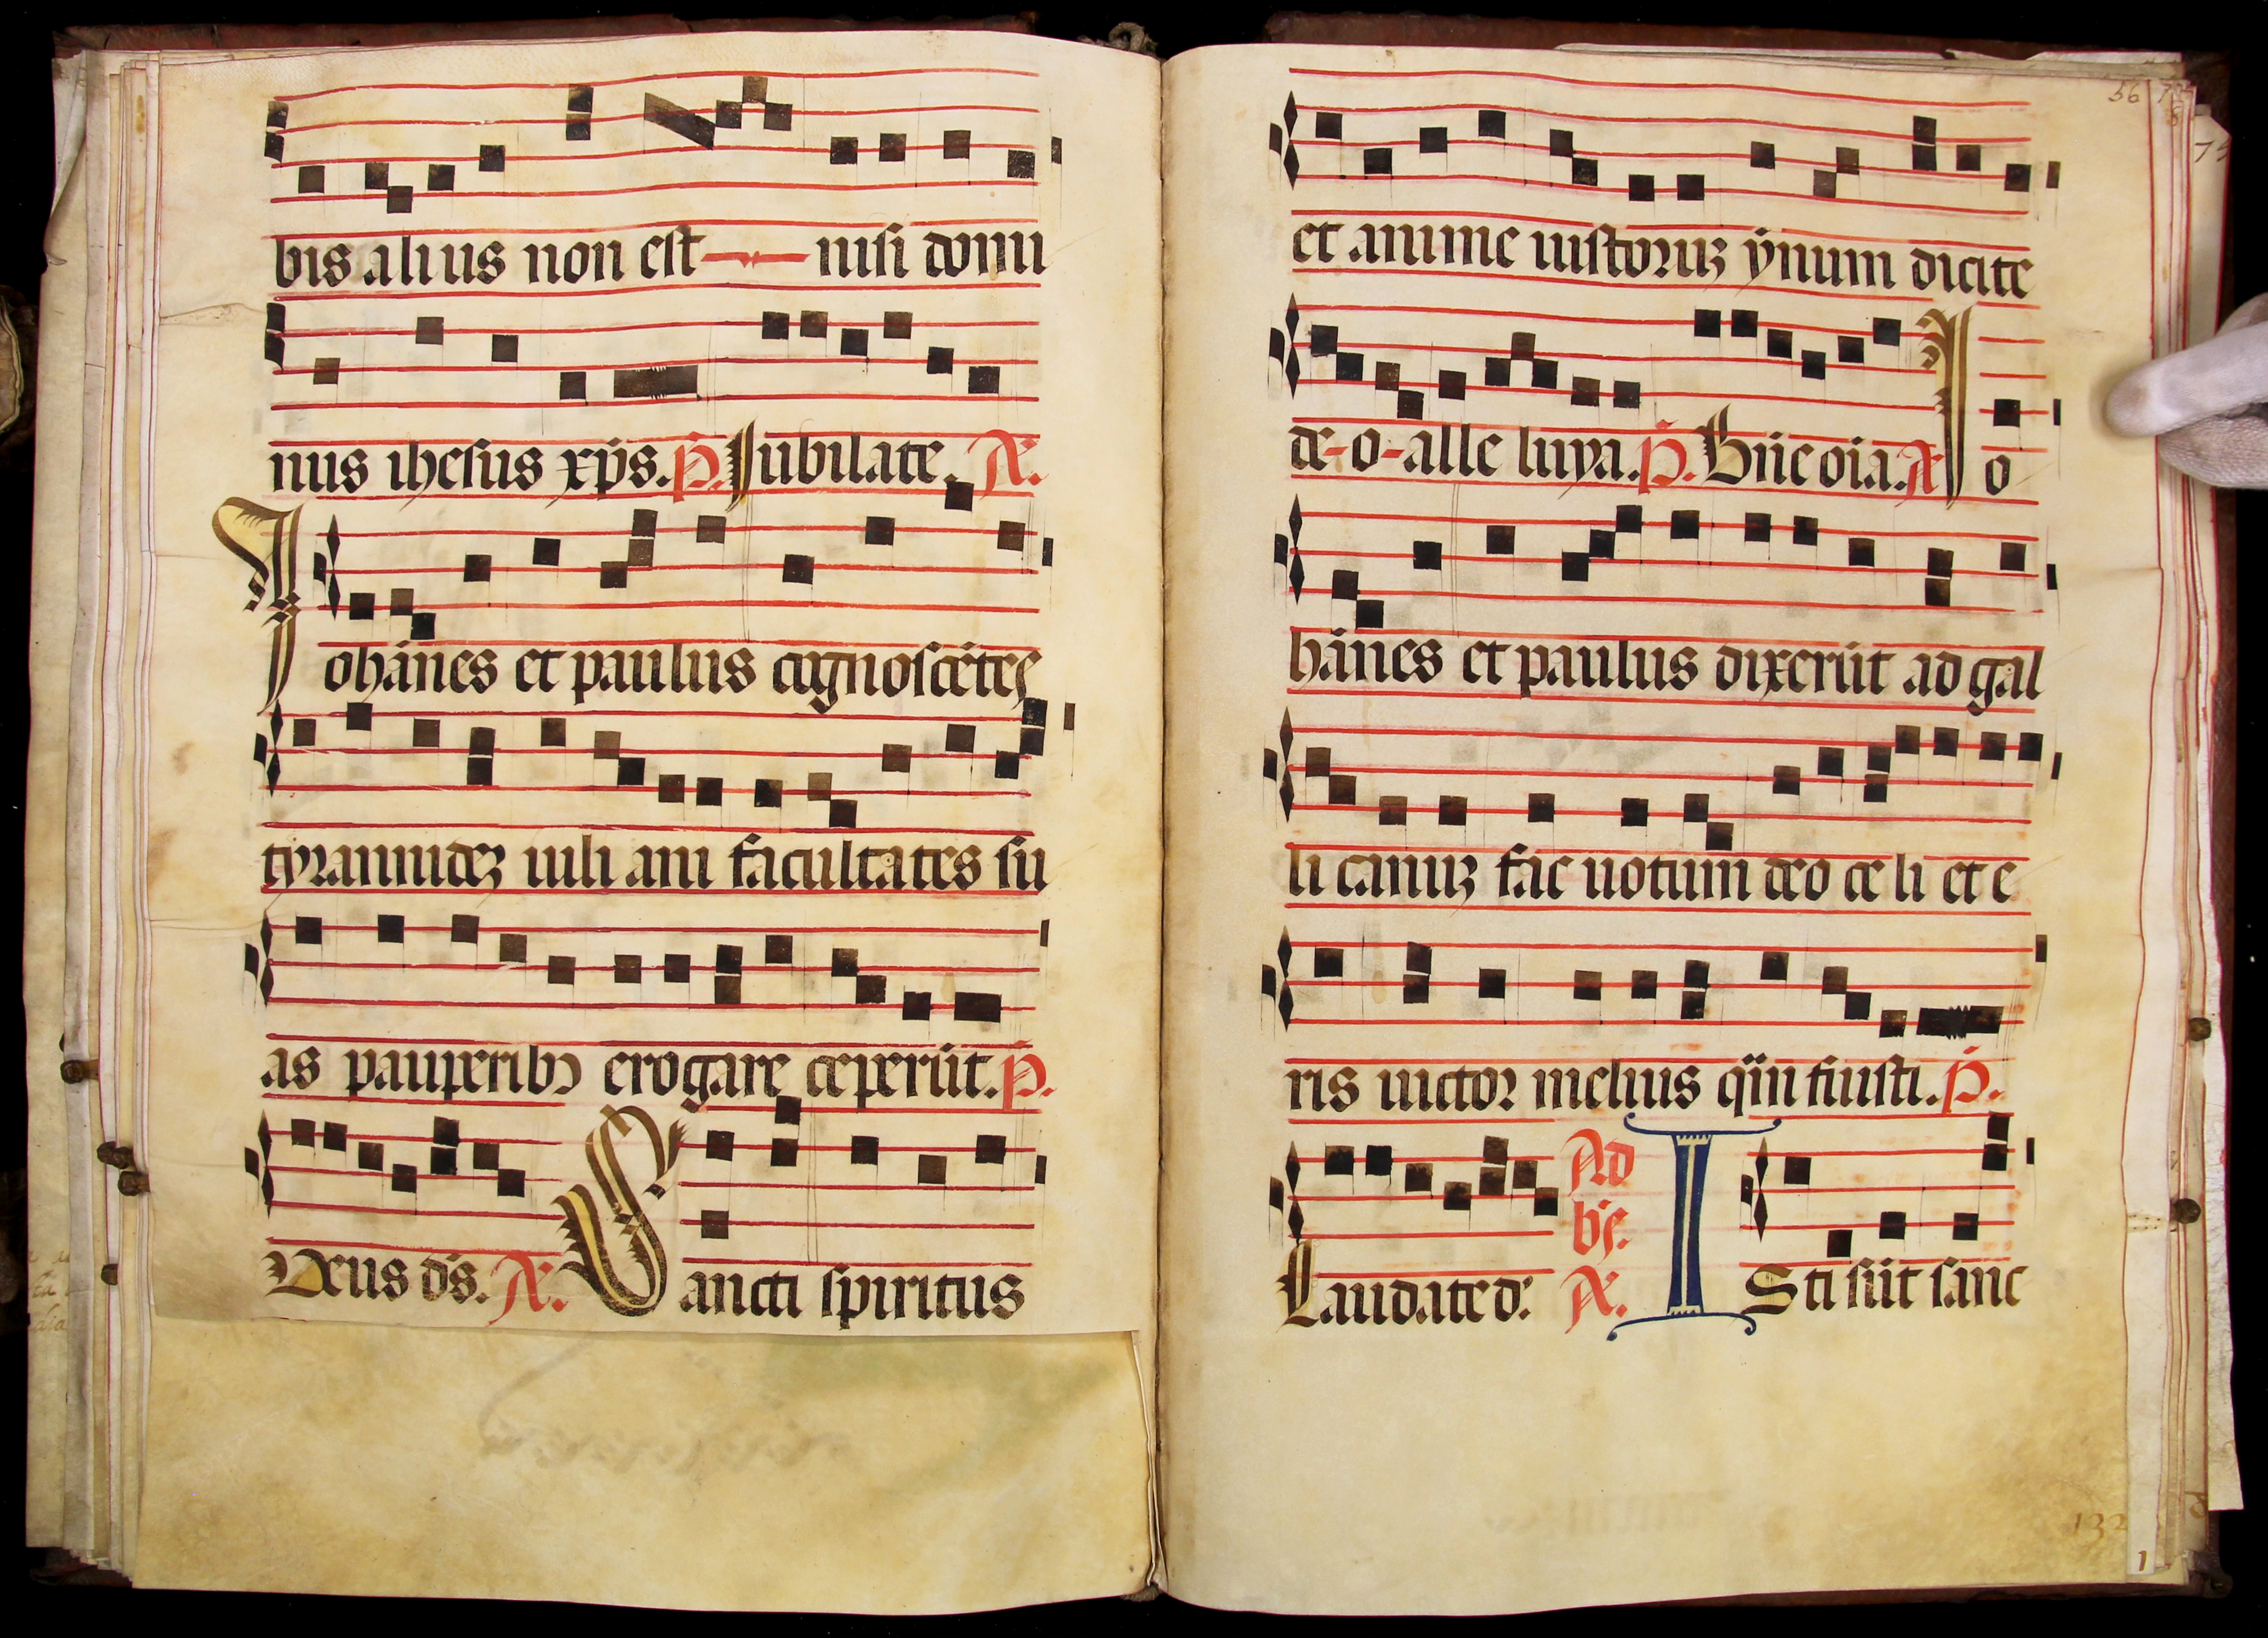 bis alius non est nisi domi
nus ihesus xp̄s. P̄. Jubilate. A.
Johānes et paulus cognoscētes
tyrannidez iuli ani facultates su
as pauperibꝰ erogare ceperūt. P̄.
Deus ds̄. A. Sancti spiritus
56
et anime iustoruz ẏnum dicite
de-o-alle luya. P̄. Bn̄e oīa. A Jo
hānes et paulus dixerūt ad gal
li canuz fac uotum deo ce li et e
ris uictor melius qͥn fuisti. P̄.
Laudate d: Ad bn̄. A. Isti sūt sanc
132
1